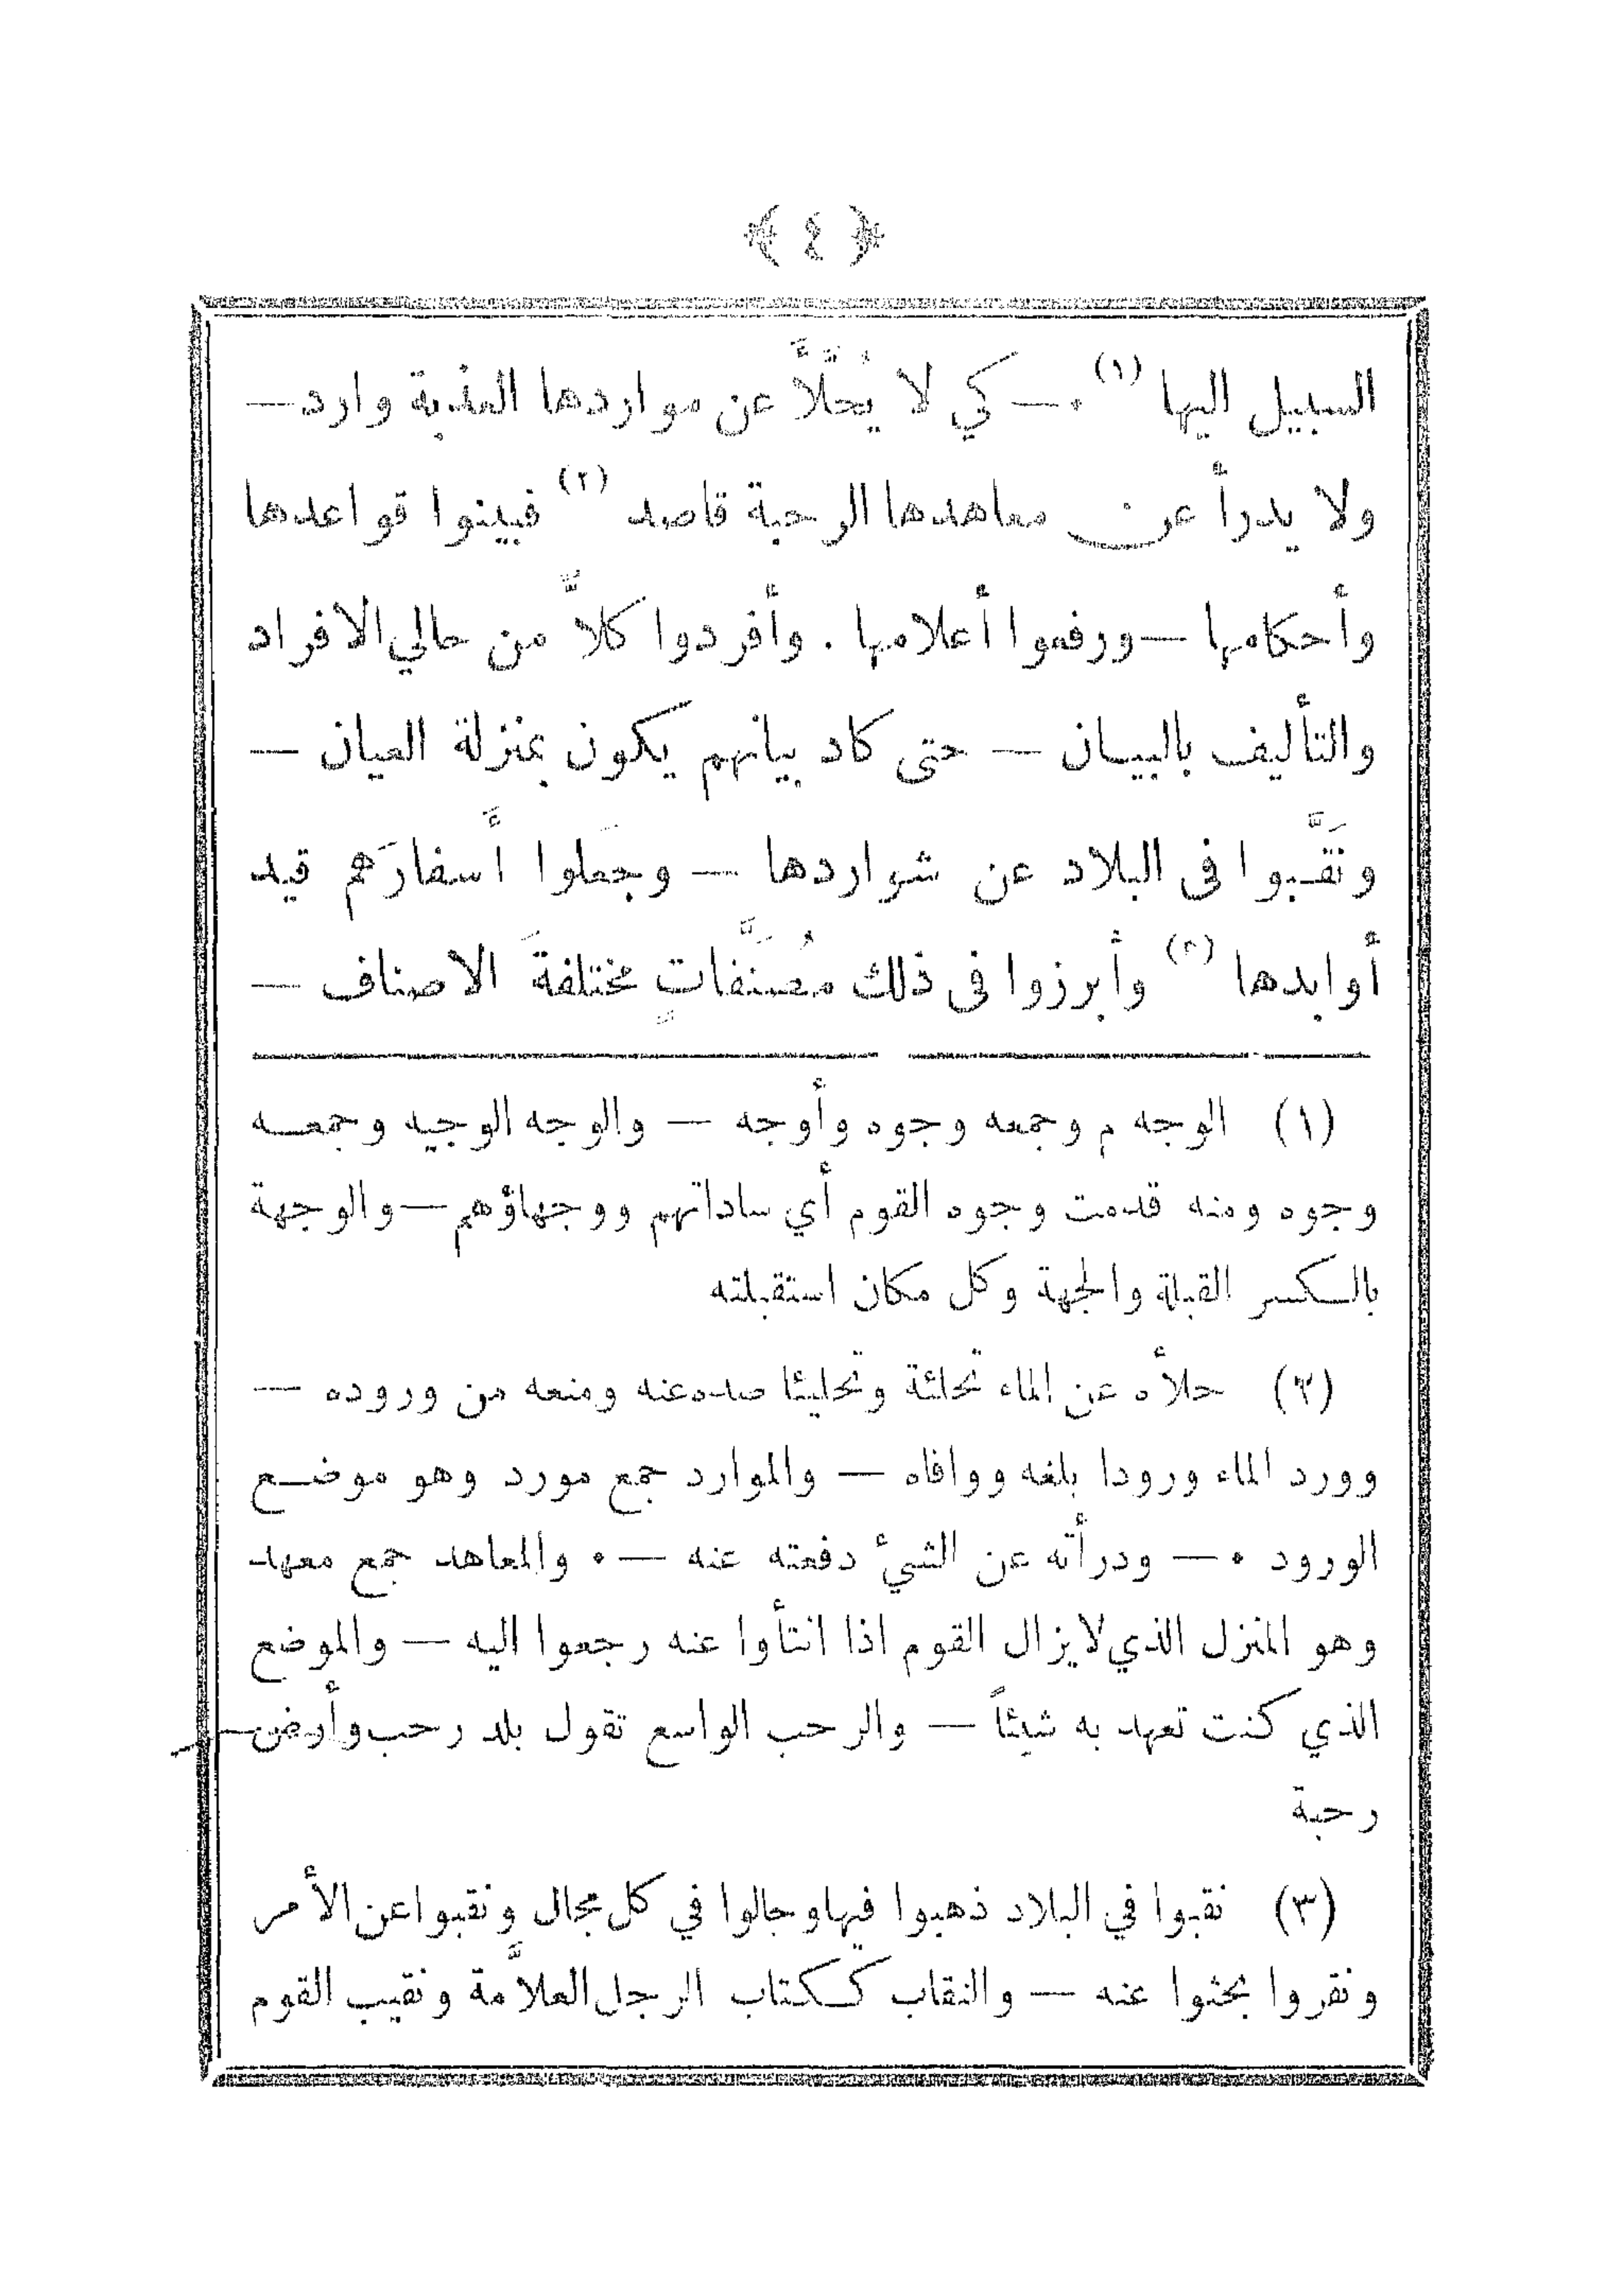 ﴿ ٤ ﴾
السبيل اليها (١) ٠— كي لا يُحَلَّأَ عن مواردها العذبة وارد —
ولا يدرأ عن معاهدها الرحبة قاصد (٢) فبينوا قواعدها
وأحكامها — ورفعوا أعلامها . وأفردوا كلاًّ من حالي الافراد
والتأليف بالبيان — حتى كاد بيانهم يكون بمنزلة العيان —
ونَقَّبوا فى البلاد عن شواردها — وجعَلوا أَسفارَهم قيد
أوابدها (٣) وأبرزوا فى ذلك مُصَنَّفاتٍ مختلفةَ الاصناف —
(١) الوجه م وجمعه وجوه وأوجه — والوجه الوجيه وجمعه
وجوه ومنه قدمت وجوه القوم أي ساداتهم ووجهاؤهم — والوجهة
بالكسر القبلة والجهة وكل مكان استقبلته
(٢) حلأه عن الماء تحلئة وتحليئا صده عنه ومنعه من وروده —
وورد الماء ورودا بلغه ووافاه — والموارد جمع مورد وهو موضع
الورود ٠— ودرأته عن الشيء دفعته عنه —٠ والمعاهد جمع معهد
وهو المنزل الذي لا يزال القوم اذا انتأوا عنه رجعوا اليه — والموضع
الذي كنت تعهد به شيئاً — والرحب الواسع تقول بلد رحب وأرض
رحبة
(٣) نقبوا في البلاد ذهبوا فيها وجالوا في كل مجال ونقبوا عن الأمر
ونقروا بحثوا عنه — والنقاب ككتاب الرجل العلاَّمة ونقيب القوم